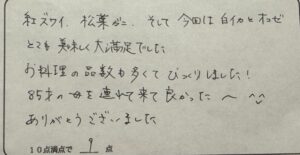 紅ズワイ、松葉がに、そして今回は白イカとオコゼ
とても美味しく大満足でした
お料理の品数も多くてびっくりしました!
85才の母を連れて来て良かった〜^^
ありがとうございました
10点満点で 9 点